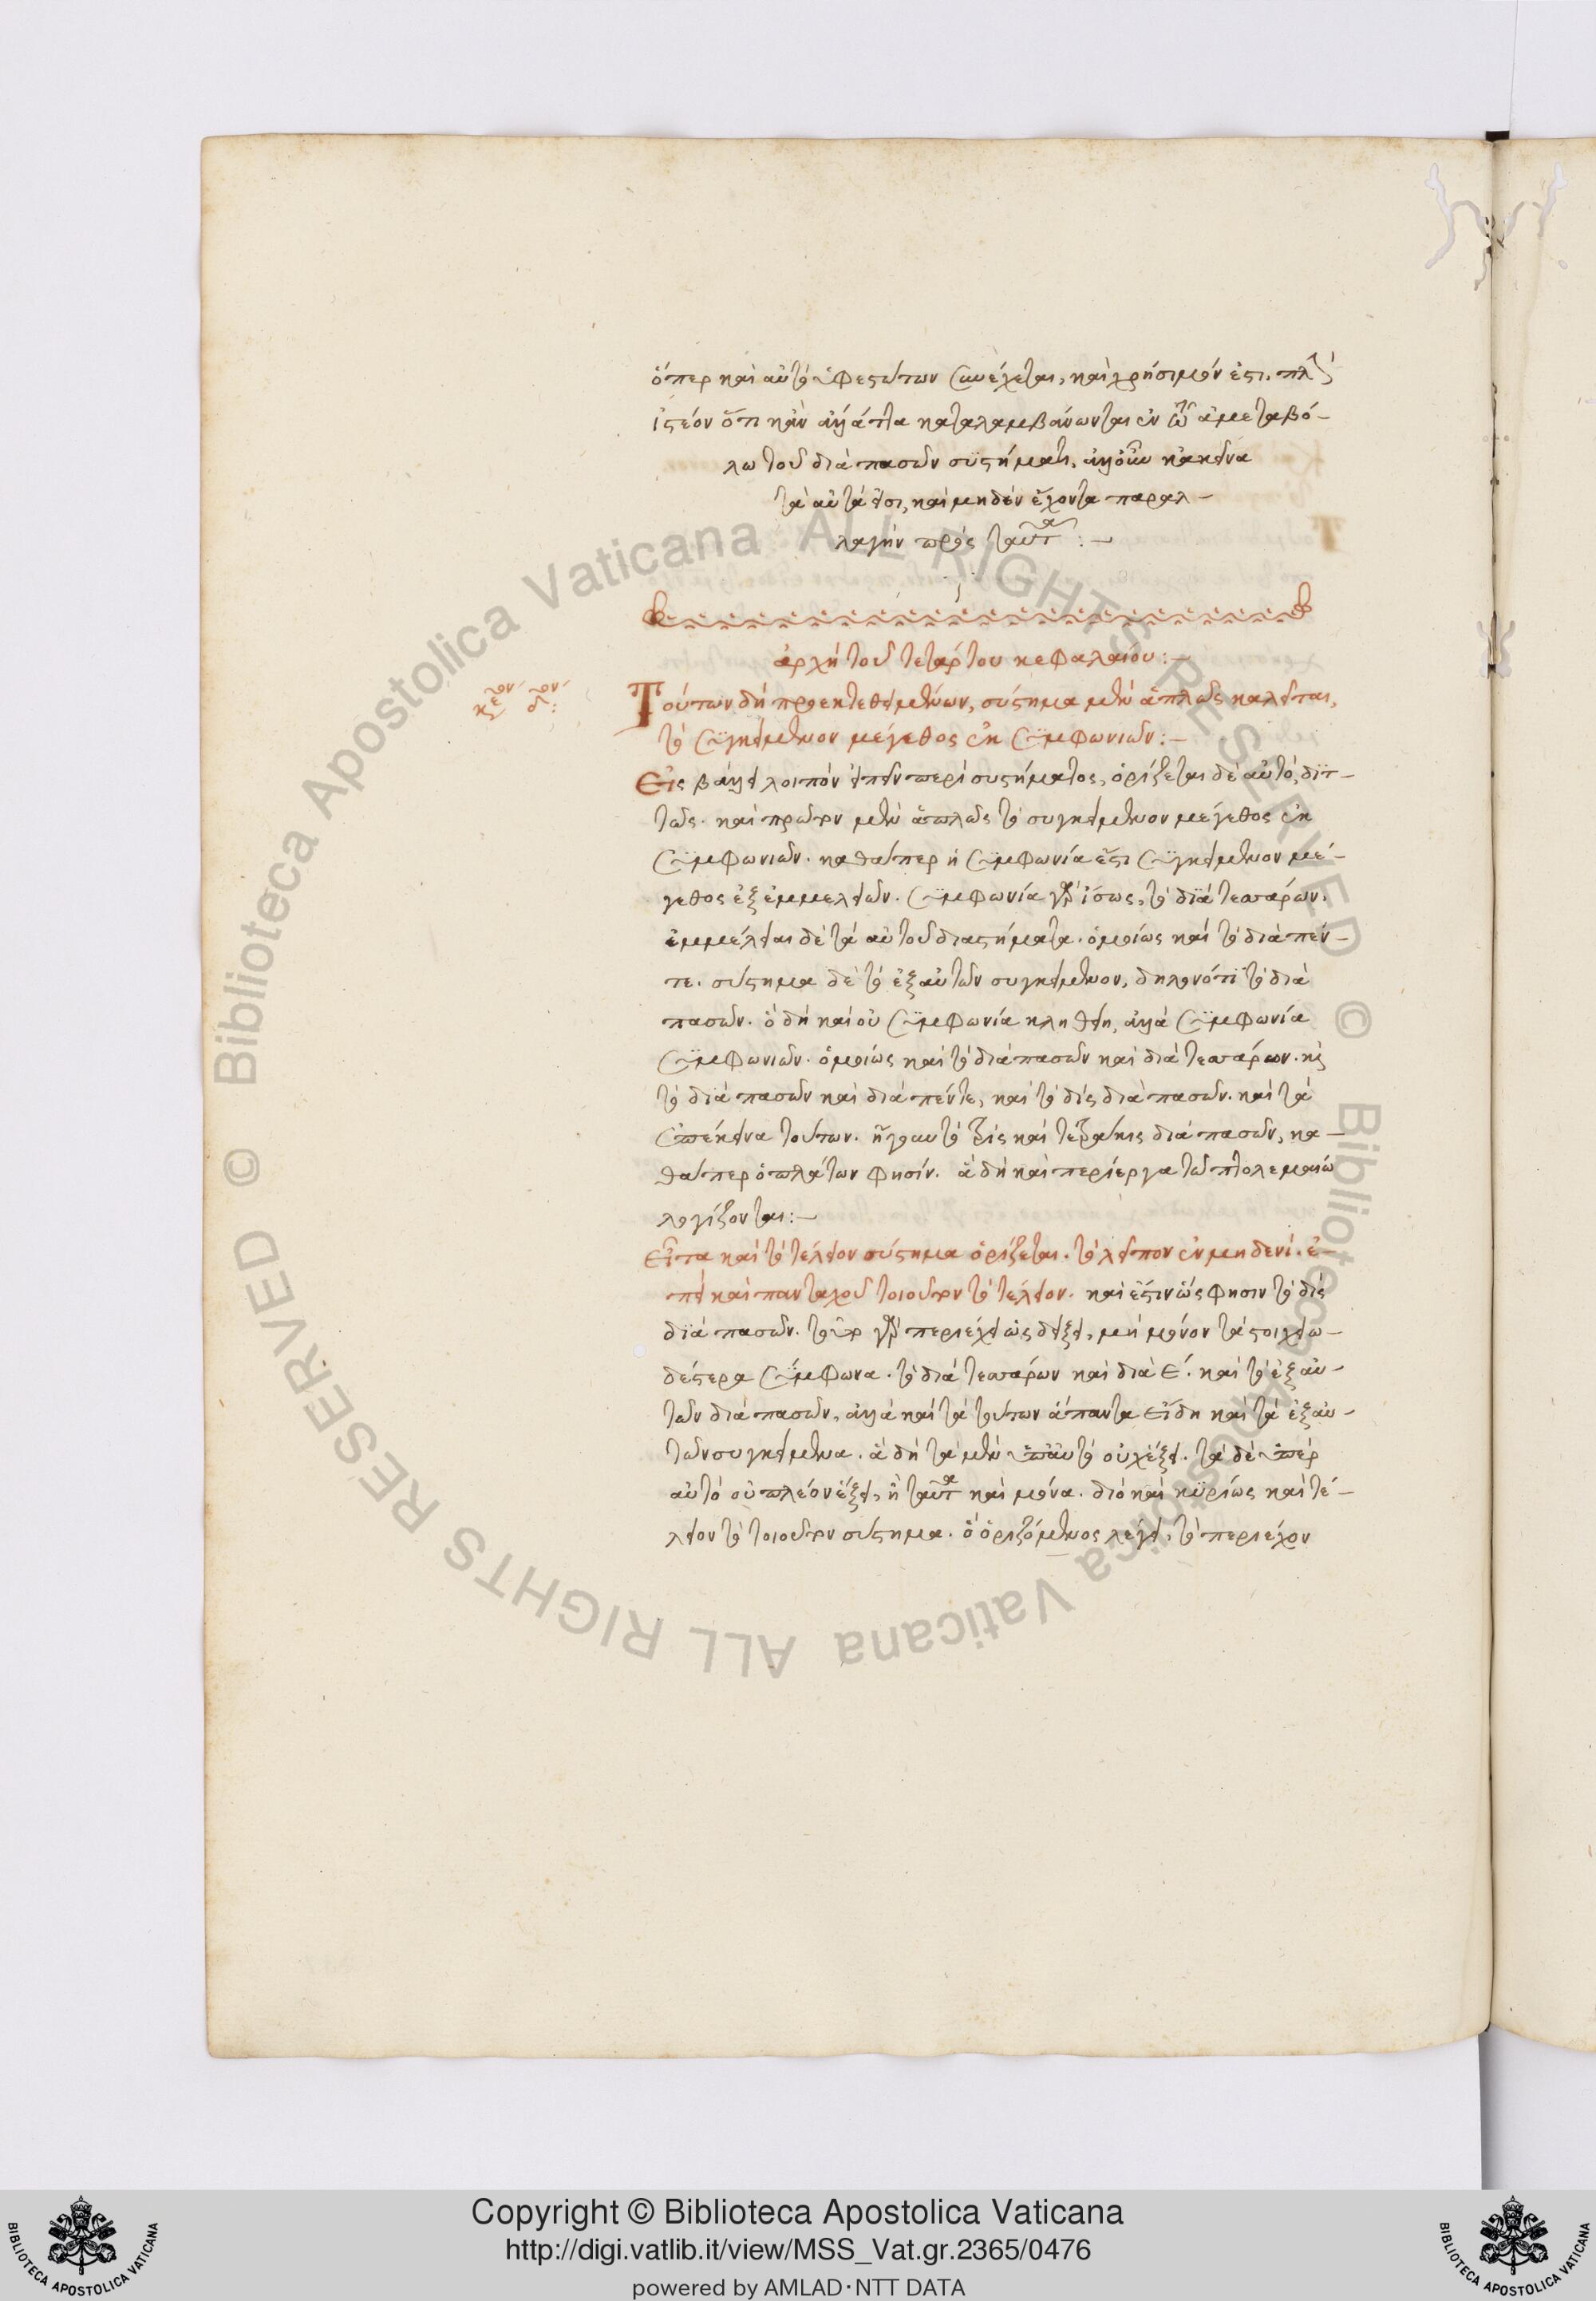 ὅπερ καὶ αὐτὸ ὑφεστώτων συνέχεται, καὶ χρήσιμόν ἐστι. πλὴν
ἰστέον ὅτι κἂν ἀλλάττα καταλαμβάνωνται ἐν τῶ ἀμεταβό-
λω τοῦ διὰ πασῶν συστήματι, ἀλλ' οὖν κἀκεῖνα
τὰ αὐτά εἰσι, καὶ μηδὲν ἔχοντα παραλ-
λαγὴν πρὸς ταῦτα :-
ἀρχὴ τοῦ τετάρτου κεφαλαίου :-
κείμενον δ:
Τούτων δὴ προεκτεθειμένων, σύστημα μὲν ἁπλῶς καλεῖται,
τὸ συγκείμενον μέγεθος ἐκ συμφωνιῶν :-
Εἰς βάλλει λοιπὸν εἰπεῖν περὶ συστήματος, ὁρίζεται δὲ αὐτὸ, διτ-
τῶς. καὶ πρῶτον μὲν ἁπλῶς τὸ συγκείμενον μέγεθος ἐκ
συμφωνιῶν. καθάπερ ἡ συμφωνία ἐστι συγκείμενον μέ-
γεθος ἐξ ἐμμελειῶν. συμφωνία γὰρ ἴσως, τὸ διὰ τεσσάρων.
ἐμμέλειαι δὲ τὰ αὐτοῦ διαστήματα. ὁμοίως καὶ τὸ διὰ πέν-
τε. σύστημα δὲ τὸ ἐξ αὐτῶν συγκείμενον, δηλονότι τὸ διὰ
πασῶν. ὃ δὴ καὶ οὐ συμφωνία κληθείη, ἀλλὰ συμφωνία
συμφωνιῶν. ὁμοίως καὶ τὸ διὰ πασῶν καὶ διὰ τεσσάρων. καὶ
τὸ διὰ πασῶν καὶ διὰ πέντε, καὶ τὸ δὶς διὰ πασῶν. καὶ τὰ
ἐπέκεινα τούτων. ἤγουν τὸ τρὶς καὶ τετράκις διὰ πασῶν, κα-
θάπερ ὁ πλάτων φησίν. ἃ δὴ καὶ περίεργα τῶ πτολεμαίω
λογίζονται :-
Εἶτα καὶ τὸ τέλειον σύστημα ὁρίζεται. τὸ λεῖπον ἐν μηδενί. ἐ-
πεὶ καὶ πανταχοῦ τοιοῦτον τὸ τέλειον. καὶ ἔστιν ὥς φησιν τὸ δὶς
διὰ πασῶν. τοῦτο γὰρ περιέχει ὡς δείξει, μὴ μόνον τὰ στοιχειω-
δέστερα σύμφωνα. τὸ διὰ τεσσάρων καὶ διὰ ε. καὶ τὸ ἐξ αὐ-
τῶν διὰ πασῶν, ἀλλὰ καὶ τὰ τούτων ἅπαντα εἴδη καὶ τὰ ἐξ αὐ-
τῶν συγκείμενα. ἃ δὴ τὰ μὲν ὑπ' αὐτὸ οὐχ ἕξει. τὰ δὲ ὑπὲρ
αὐτὸ οὐ πλέον ἕξει, ἢ ταῦτα καὶ μόνα. διὸ καὶ κυρίως καὶ τέ-
λειον τὸ τοιοῦτον σύστημα. ὃ ὁριζόμενος λέγει, τὸ περιέχον
Copyright © Biblioteca Apostolica Vaticana
http://digi.vatlib.it/view/MSS_Vat.gr.2365/0476
powered by AMLAD·NTT DATA
BIBLIOTECA APOSTOLICA VATICANA
BIBLIOTECA APOSTOLICA VATICANA
© Biblioteca Apostolica Vaticana ALL RIGHTS RESERVED © Biblioteca Apostolica Vaticana ALL RIGHTS RESERVED